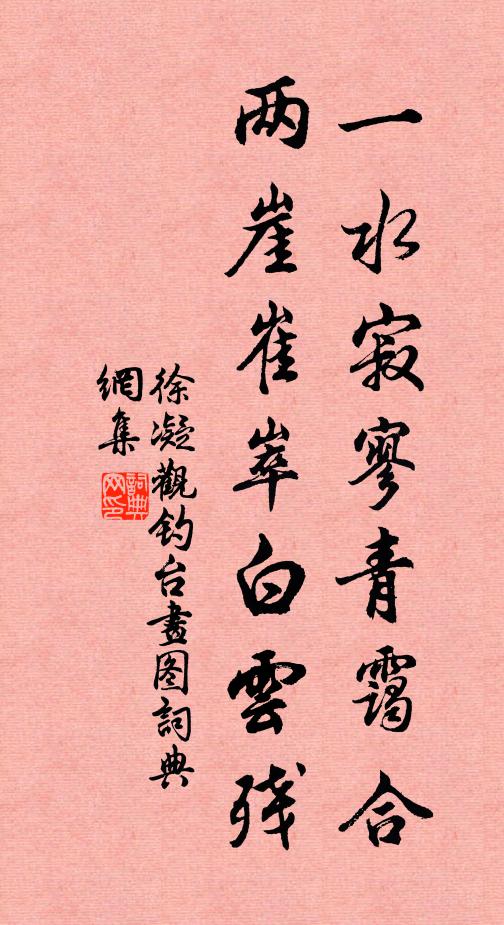 一水寂寥青靄合
两崖崔崒白雲残
徐凝觀钓台畫图詞典
網集
詞典
网印